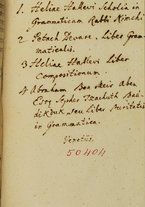 1. Heliae Hallevi Scholia in
Grammaticam Rabbi Kimchi
2. Petach Devare, Liber Gram-
maticalis.
3 Heliae Hallevi Liber
Compositionum.
4 Abraham Ben Meir Aben
Esry Sepher Tzachuth Be
Dikduk, seu Liber Puritatis
in Grammatica.
Venetiis.
50404